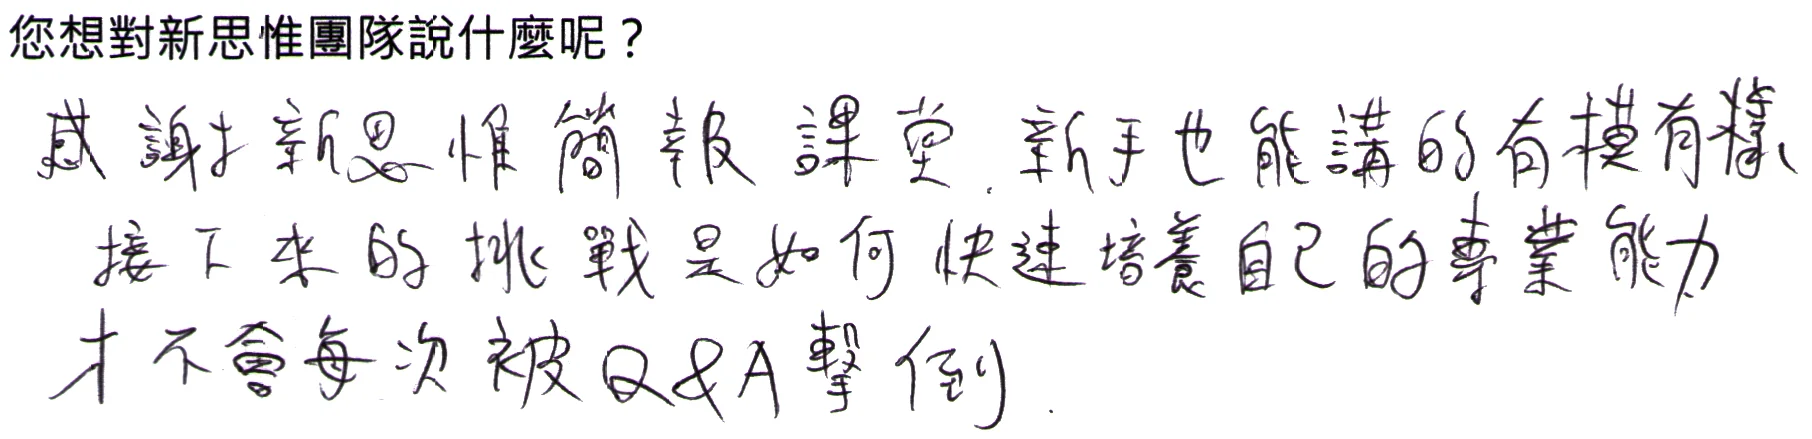 您想對新思惟團隊說什麼呢？
感謝新思惟簡報課堂.新手也能講的有模有樣、
接下來的挑戰是如何快速培養自己的專業能力
才不會每次被Q&A擊倒.